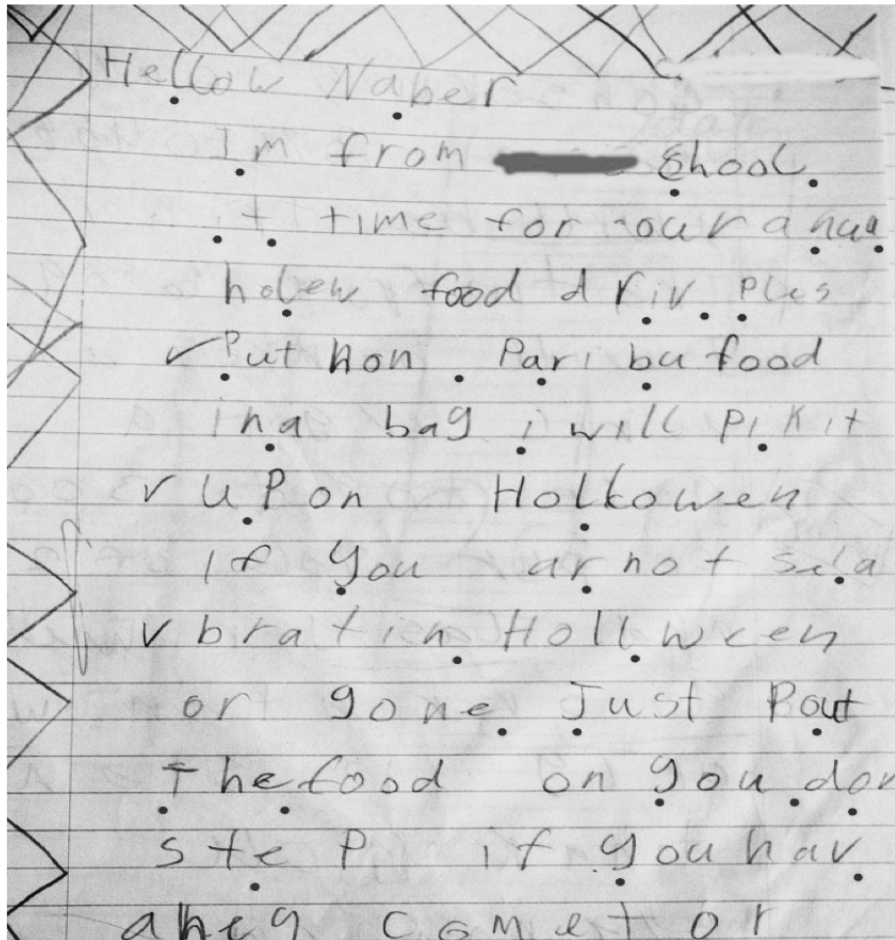 Hellow Naber
Im from Shool
it time for our anua
holew food driv Ples
Put non Paribu food
in a bag i will pik it
UP on Hollowen
if you ar not sela
bration Hollween
or gone Just Pout
The food on you dor
steP if you hav
aney comet or